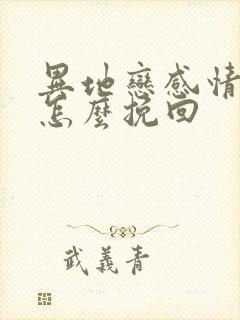 異地戀感情
怎麼挽回
武義青